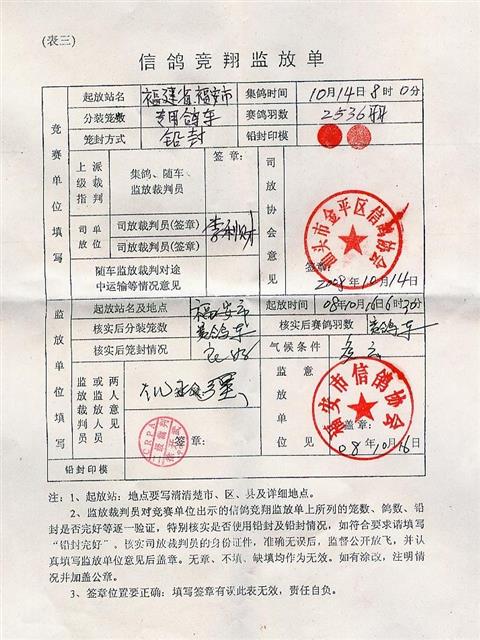 (表三)
信鸽竞翔监放单
竞赛单位填写
起放站名 福建省福安市 集鸽时间 10月14日8时0分
分装笼数 专用鸽车 赛鸽羽数 2536羽
笼封方式 铅封 铅封印模
上级指派裁判 集鸽、随车、监放裁判员 签章:
司放单位 司放裁判员(签章) 李利财
司放裁判员(签章)
随车监放裁判对途中运输等情况意见
司放协会意见 汕头市金平区信鸽协会
签章:
2008年10月14日
监放单位填写
起放站名及地点 福安市 起放时间 08年10月16日6时30分
核实后分装笼数 赛鸽车 核实后赛鸽羽数 赛鸽车
核实后笼封情况 完好 气候条件 多云
监放或监放裁判两人意见人员
CRPA
签章:
监放单位意见 福安市信鸽协会
盖章:
08年10月16日
铅封印模
注:1、起放站:地点要写清清楚市、区、县及详细地点。
2、监放裁判员对竞赛单位出示的信鸽竞翔监放单上所列的笼数、鸽数、铅
封是否完好等逐一验证,特别核实是否使用铅封及铅封情况,如符合要求请填写
“铅封完好”,核实司放裁判员的身份证件,准确无误后,监督公开放飞,并认
真填写监放单位意见后盖章。无章、不填、缺填均作为无效。如有涂改,注明情
况并加盖公章。
3、签章位置要正确:填写签章有误此表无效,责任自负。